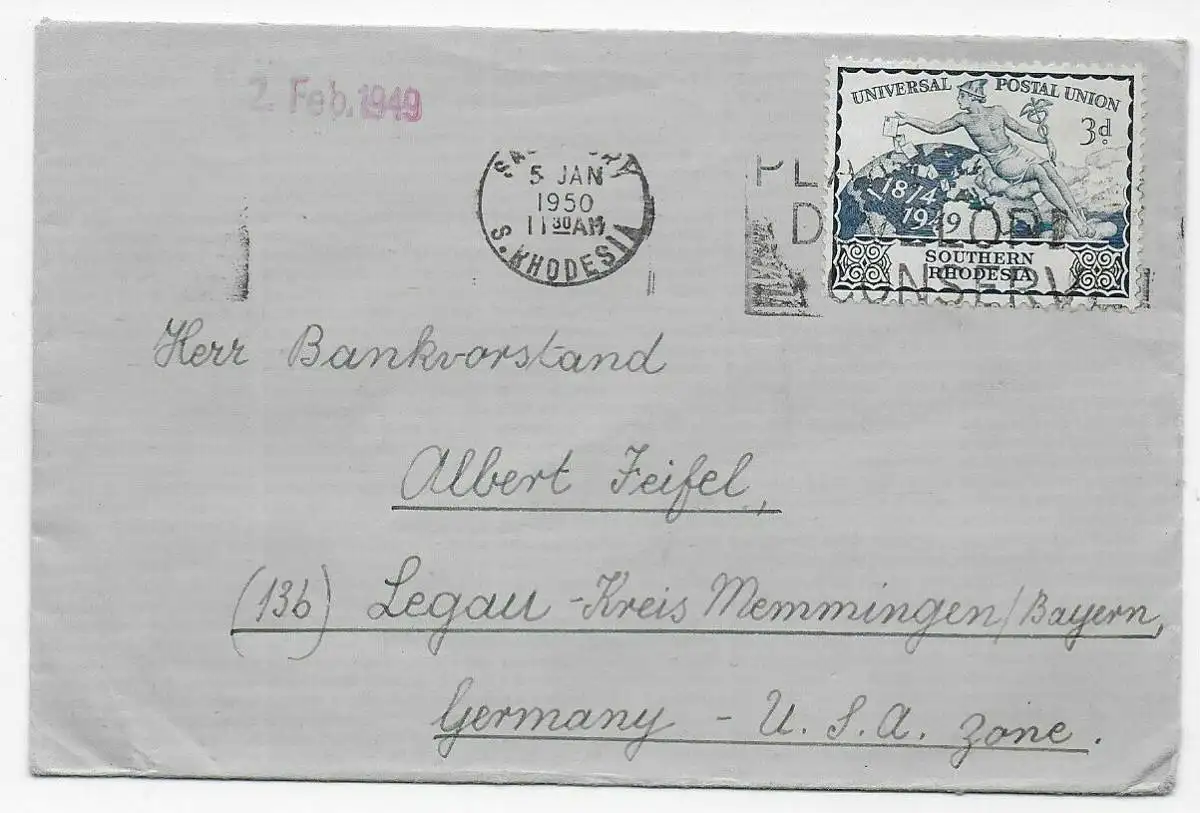 2. Feb. 1949
5 JAN
1950
11 30 AM
S. RHODESIA
UNIVERSAL POSTAL UNION
3d.
1874
1949
SOUTHERN
RHODESIA
Herr Bankvorstand
Albert Feifel,
(13b) Legau - Kreis Memmingen/Bayern,
Germany - U. S. A. Zone.